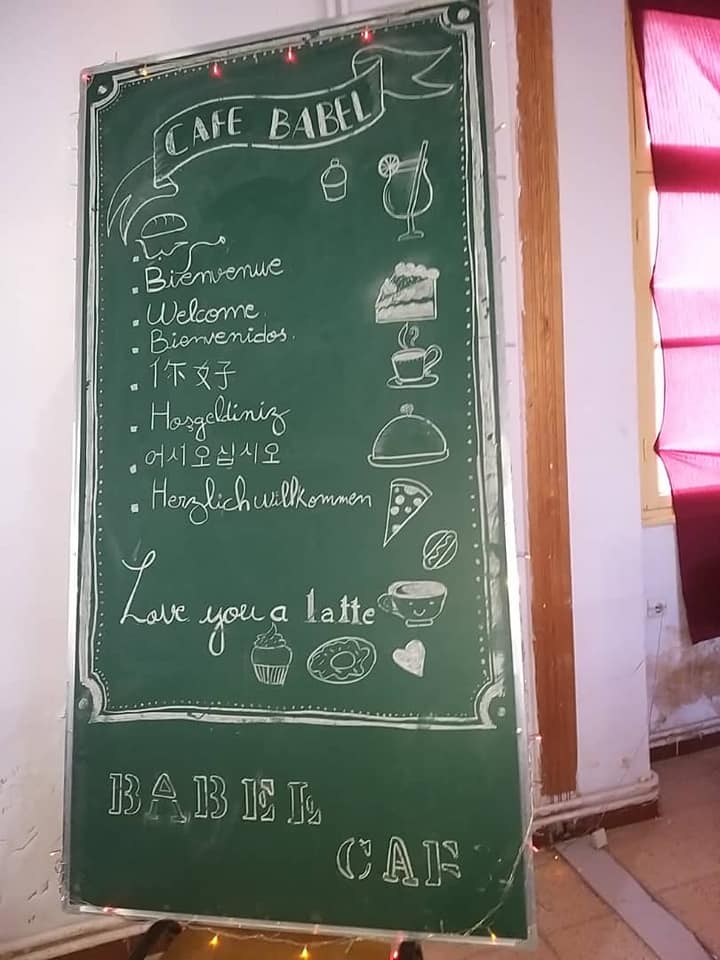 CAFE BABEL
Bienvenue
Welcome
Bienvenidos.
你好
Hoşgeldiniz
어시오십시오
Herzlich willkommen
Love you a latte
BABEL
CAF